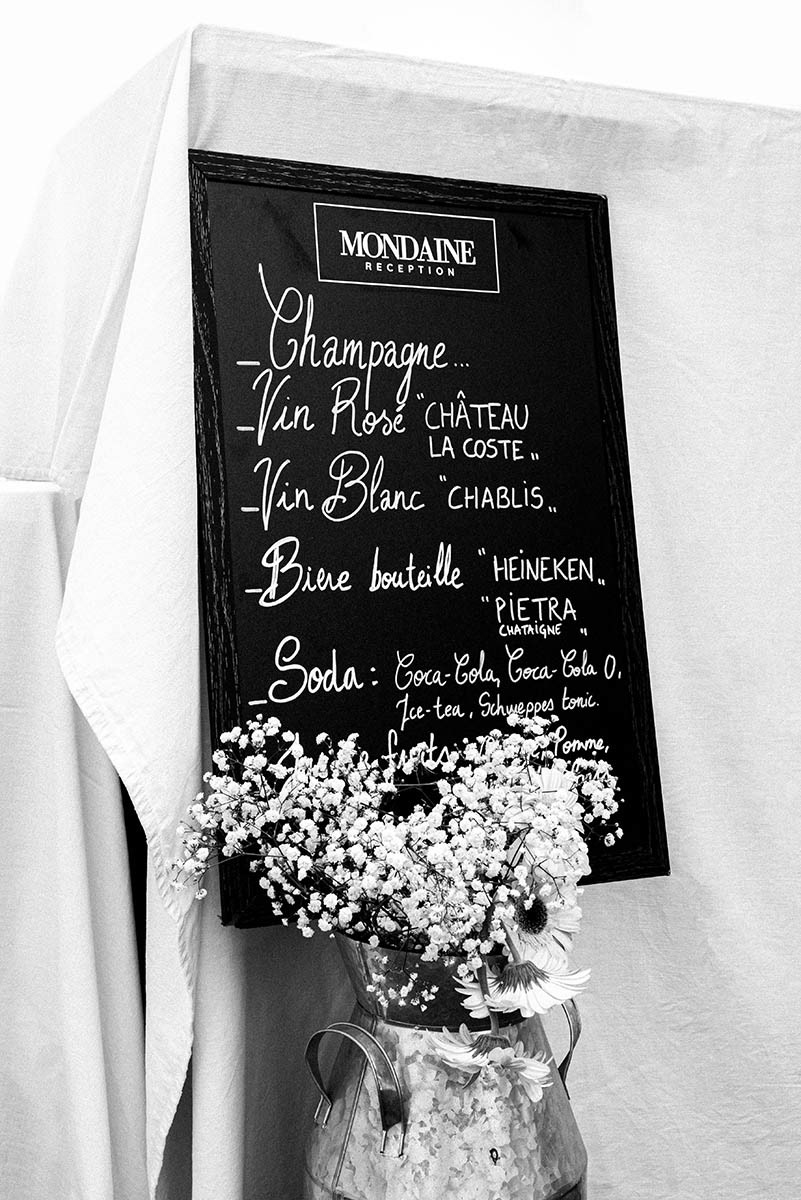 MONDAINE
RECEPTION
_ Champagne...
_ Vin Rosé "CHÂTEAU
LA COSTE„
_ Vin Blanc "CHABLIS„
_ Bière bouteille "HEINEKEN„
"PIETRA
CHATAIGNE „
_ Soda : Coca-Cola, Coca-Cola 0,
Ice-tea, Schweppes tonic.
fruits Pomme,